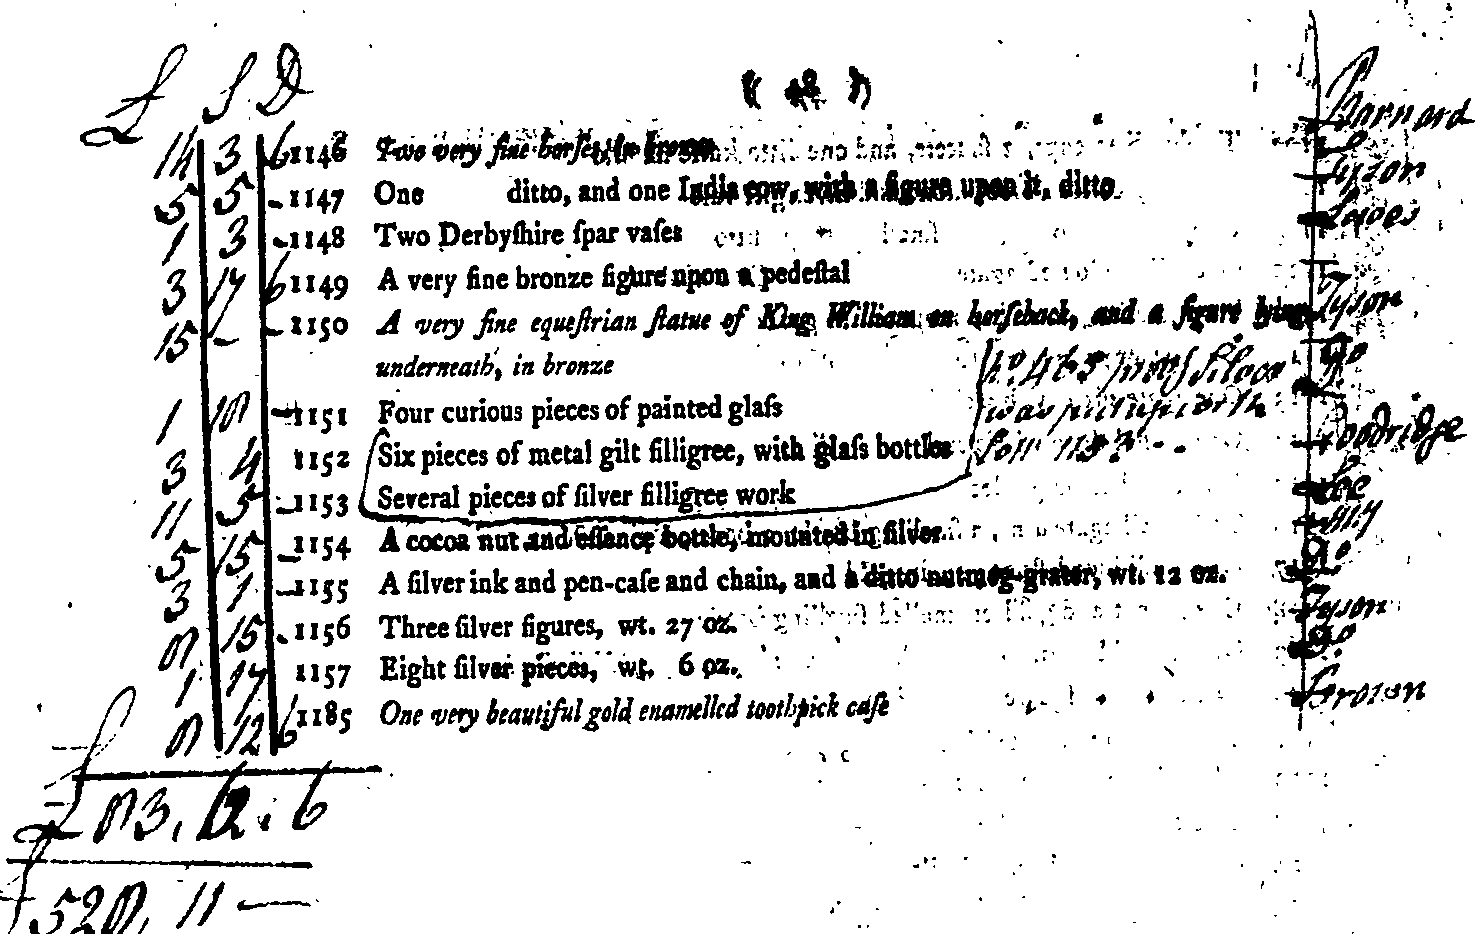 £ S D
( 48 )
14 3 6 1146 Two very fine horses, in bronze Barnard
5 5 - 1147 One ditto, and one India cow, with a figure upon it, ditto Do
1 3 - 1148 Two Derbyſhire ſpar vaſes Tyson
3 17 6 1149 A very fine bronze figure upon a pedeſtal
15 - - 1150 A very fine equeſtrian ſtatue of King William on horſeback, and a figure lying Tyson
underneath, in bronze Do
No. 465
was put up with
1 18 - 1151 Four curious pieces of painted glaſs
3 4 1152 Six pieces of metal gilt filligree, with glaſs bottles Lott 1153 - -
11 5 - 1153 Several pieces of ſilver filligree work Lee
5 15 - 1154 A cocoa nut and eſſence bottle, mounted in ſilver
3 1 - 1155 A ſilver ink and pen-caſe and chain, and a ditto nutmeg-grater, wt. 12 oz. Do
8 15 - 1156 Three ſilver figures, wt. 27 oz. Tyson
1 17 1157 Eight ſilver pieces, wt. 6 oz. Do
8 12 6 1185 One very beautiful gold enamelled toothpick caſe
£ 83. 12. 6
528. 11 —